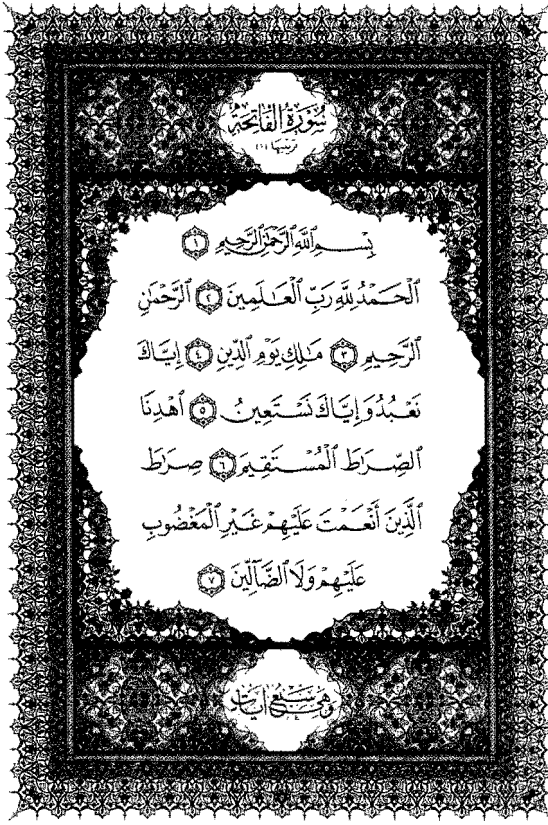 سُورَةُ الْفَاتِحَةِ
ترتيبها (١)
بِسْمِ ٱللَّهِ ٱلرَّحْمَٰنِ ٱلرَّحِيمِ ١
ٱلْحَمْدُ لِلَّهِ رَبِّ ٱلْعَٰلَمِينَ ٢ ٱلرَّحْمَٰنِ
ٱلرَّحِيمِ ٣ مَٰلِكِ يَوْمِ ٱلدِّينِ ٤ إِيَّاكَ
نَعْبُدُ وَإِيَّاكَ نَسْتَعِينُ ٥ ٱهْدِنَا
ٱلصِّرَٰطَ ٱلْمُسْتَقِيمَ ٦ صِرَٰطَ
ٱلَّذِينَ أَنْعَمْتَ عَلَيْهِمْ غَيْرِ ٱلْمَغْضُوبِ
عَلَيْهِمْ وَلَا ٱلضَّآلِّينَ ٧
وَهِيَ سَبْعُ آيَات